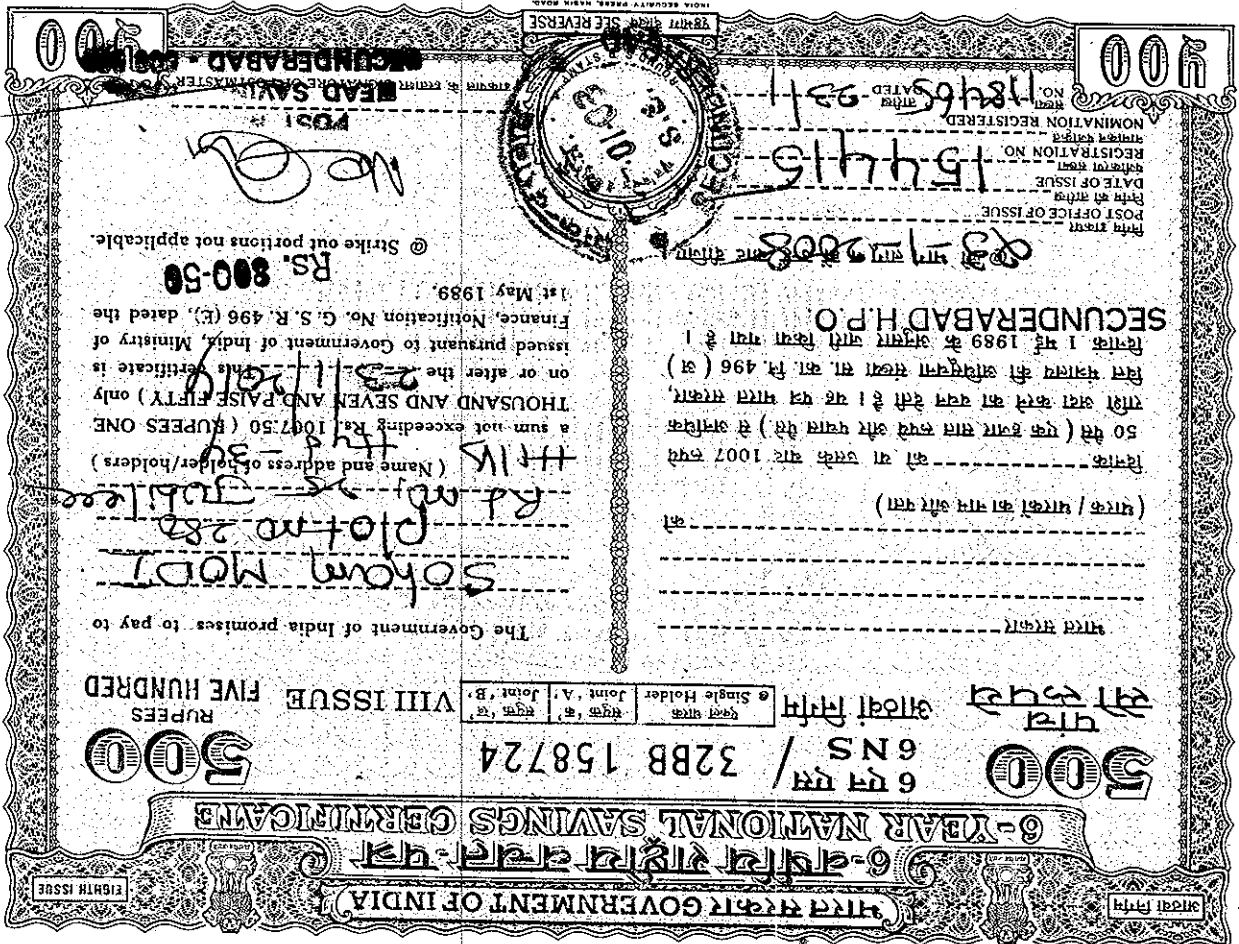 आठवां निर्गम
भारत सरकार GOVERNMENT OF INDIA
EIGHTH ISSUE
6-वर्षीय राष्ट्रीय बचत-पत्र
6-YEAR NATIONAL SAVINGS CERTIFICATE
500
पांच
सौ रुपये
6 एन एस /
6 NS
32BB 158724
500
RUPEES
FIVE HUNDRED
आठवां निर्गम
एकल धारक संयुक्त 'क' संयुक्त 'ख'
@ Single Holder Joint 'A' Joint 'B'
VIII ISSUE
भारत सरकार
को
(धारक / धारकों का नाम और पता)
दिनांक को या उसके बाद 1007 रुपये
50 पैसे (एक हजार सात रुपये और पचास पैसे) से अनधिक
राशि अदा करने का वचन देती है। यह पत्र भारत सरकार,
वित्त मंत्रालय की अधिसूचना संख्या सा. का. नि. 496 (अ)
दिनांक 1 मई 1989 के अनुसार जारी किया गया है।
SECUNDERABAD H.P.O
23-1-2008
निर्गम डाकघर
POST OFFICE OF ISSUE
निर्गम की तारीख
DATE OF ISSUE
पंजीकरण संख्या
REGISTRATION NO
154415
नामांकन पंजीकृत
NOMINATION REGISTERED
संख्या
NO. 118469
तारीख
DATED 23/1
500
The Government of India promises to pay to
Soham MODI
Plot no 280
Rd no, 25 Jubilee
Hills Hyd - 34
(Name and address of holder/holders)
a sum not exceeding Rs. 1007.50 (RUPEES ONE
THOUSAND AND SEVEN AND PAISE FIFTY) only
on or after the 23/1/2014 This certificate is
issued pursuant to Government of India, Ministry of
Finance, Notification No. G.S.R. 496 (E), dated the
1st May 1989.
Rs. 800-50
@ Strike out portions not applicable.
POST
HEAD SAVI
SIGNATURE OF POSTMASTER
SECUNDERABAD -
500
SECUNDERABAD
पृष्ठभाग देखिये SEE REVERSE
INDIA SECURITY PRESS, NASIK ROAD.